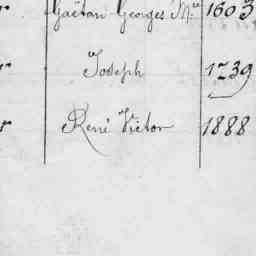 r Gaëtan Georges M.ie 1603
r Joseph 1739
r René Victor 1888